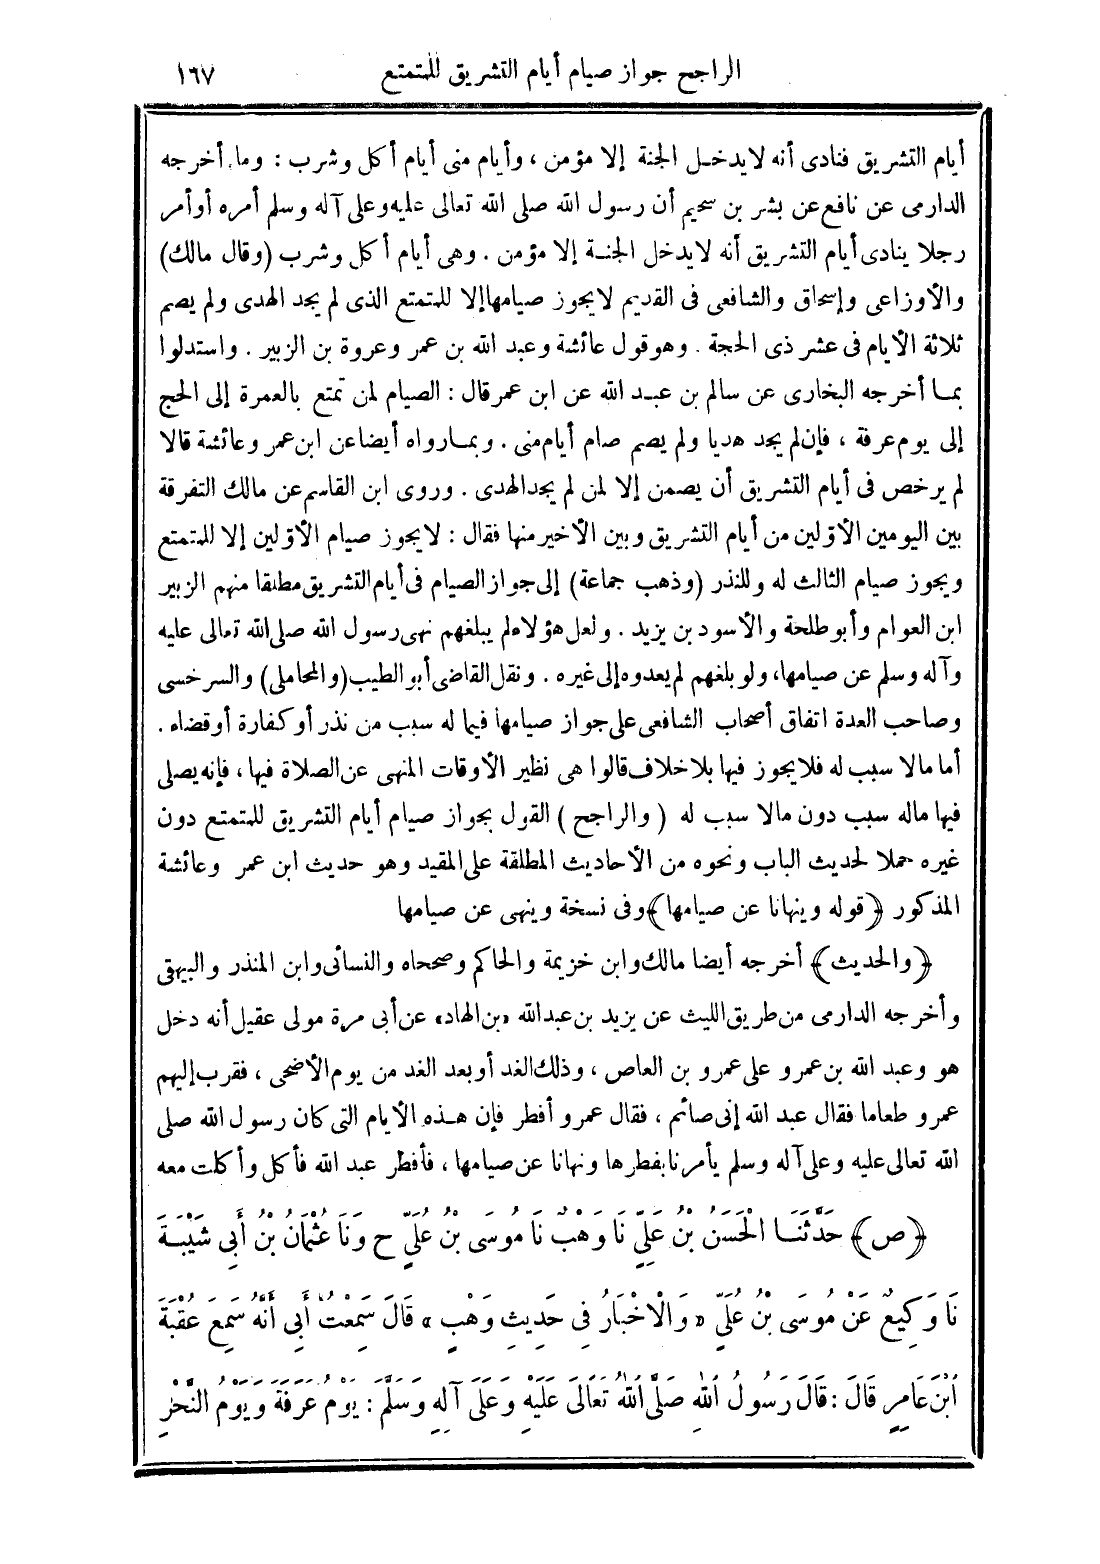 الراجح جواز صيام أيام التشريق للمتمتع ١٦٧
أيام التشريق فنادى أنه لايدخل الجنة إلا مؤمن ، وأيام منى أيام أكل وشرب : وما أخرجه
الدارمى عن نافع عن بشر بن سحيم أن رسول الله صلى الله تعالى عليه وعلى آله وسلم أمره أو أمر
رجلا ينادى أيام التشريق أنه لايدخل الجنة إلا مؤمن . وهى أيام أكل وشرب (وقال مالك)
والأوزاعى وإسحاق والشافعى فى القديم لايجوز صيامها إلا للمتمتع الذى لم يجد الهدى ولم يصم
ثلاثة الأيام فى عشر ذى الحجة . وهو قول عائشة وعبد الله بن عمر وعروة بن الزبير . واستدلوا
بما أخرجه البخارى عن سالم بن عبد الله عن ابن عمر قال : الصيام لمن تمتع بالعمرة إلى الحج
إلى يوم عرفة ، فإن لم يجد هديا ولم يصم صام أيام منى . وبما رواه أيضا عن ابن عمر وعائشة قالا
لم يرخص فى أيام التشريق أن يصمن إلا لمن لم يجد الهدى . وروى ابن القاسم عن مالك التفرقة
بين اليومين الأولين من أيام التشريق وبين الأخير منها فقال : لايجوز صيام الأولين إلا للمتمتع
ويجوز صيام الثالث له وللنذر (وذهب جماعة) إلى جواز الصيام فى أيام التشريق مطلقا منهم الزبير
ابن العوام وأبو طلحة والأسود بن يزيد . ولعل هؤلاء لم يبلغهم نهى رسول الله صلى الله تعالى عليه
وآله وسلم عن صيامها، ولو بلغهم لم يعدوه إلى غيره . ونقل القاضى أبو الطيب (والمحاملى) والسرخسى
وصاحب العدة اتفاق أصحاب الشافعى على جواز صيامها فيما له سبب من نذر أو كفارة أو قضاء .
أما مالا سبب له فلا يجوز فيها بلا خلاف قالوا هى نظير الأوقات المنهى عن الصلاة فيها ، فإنه يصلى
فيها ماله سبب دون مالا سبب له (والراجح) القول بجواز صيام أيام التشريق للمتمتع دون
غيره حملا لحديث الباب ونحوه من الأحاديث المطلقة على المقيد وهو حديث ابن عمر وعائشة
المذكور ﴿قوله وينهانا عن صيامها﴾ وفى نسخة وينهى عن صيامها
﴿والحديث﴾ أخرجه أيضا مالك وابن خزيمة والحاكم وصححاه والنسائى وابن المنذر والبيهقى
وأخرجه الدارمى من طريق الليث عن يزيد بن عبد الله «بن الهاد» عن أبى مرة مولى عقيل أنه دخل
هو وعبد الله بن عمرو على عمرو بن العاص ، وذلك الغد أو بعد الغد من يوم الأضحى ، فقرب إليهم
عمرو طعاما فقال عبد الله إنى صائم ، فقال عمرو أفطر فإن هذه الأيام التى كان رسول الله صلى
الله تعالى عليه وعلى آله وسلم يأمرنا بفطرها ونهانا عن صيامها ، فأفطر عبد الله فأكل وأكلت معه
﴿ص﴾ حَدَّثَنَا الْحَسَنُ بْنُ عَلِيٍّ نَا وَهْبٌ نَا مُوسَى بْنُ عُلَيٍّ ح وَنَا عُثْمَانُ بْنُ أَبِي شَيْبَةَ
نَا وَكِيعٌ عَنْ مُوسَى بْنِ عُلَيٍّ « وَالْاخْبَارُ فِي حَدِيثِ وَهْبٍ » قَالَ سَمِعْتُ أَبِي أَنَّهُ سَمِعَ عُقْبَةَ
ابْنَ عَامِرٍ قَالَ : قَالَ رَسُولُ اللهِ صَلَّى اللهُ تَعَالَى عَلَيْهِ وَعَلَى آلِهِ وَسَلَّمَ : يَوْمُ عَرَفَةَ وَيَوْمُ النَّحْرِ